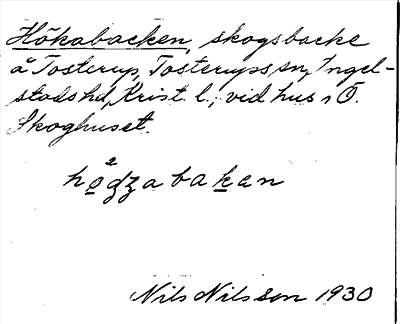 Hökabacken, skogsbacke
å Tosterup, Tosterups sn, Ingel-
stads hd, Krist. l.; vid hus n Ö.
Skoghuset.
Nils Nilsson 1930